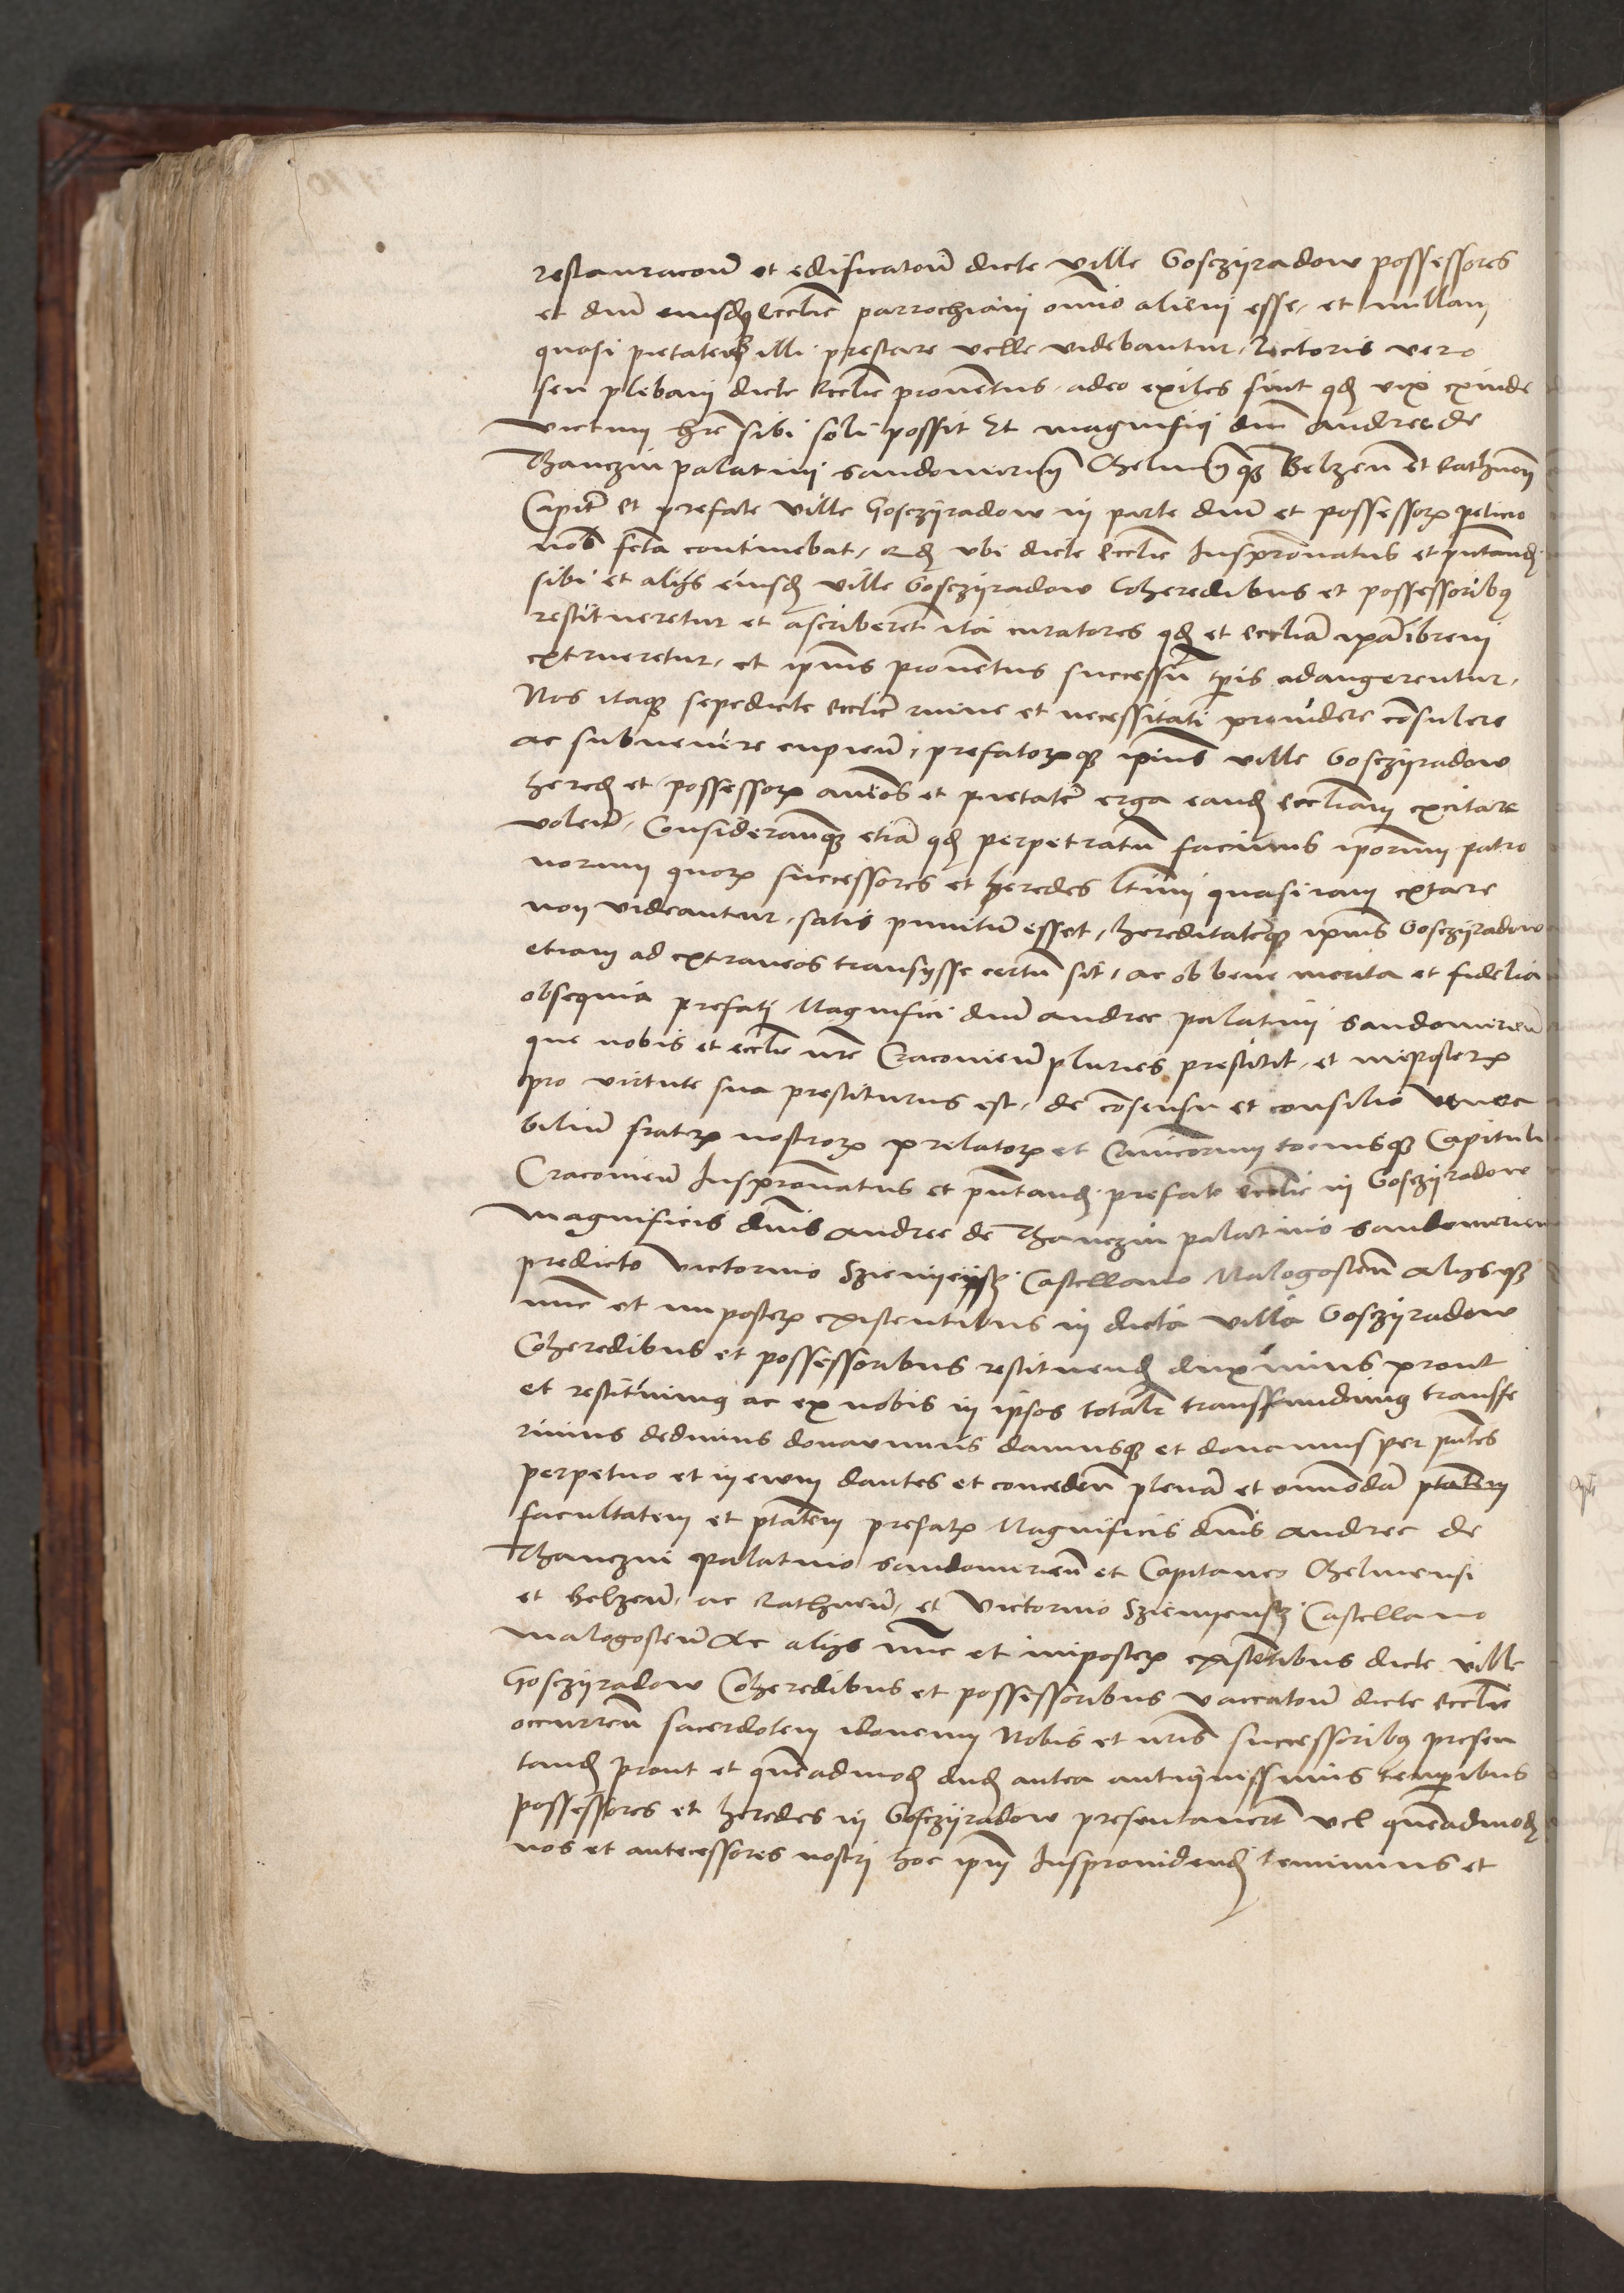 restauracioni et edificationi dicte ville Gosczyradow possessores
et dni eiusdem ecclie parrochiani omnio alieni esse, et nullam
quasi pietatem illi prestare velle videbantur, Rectoris vero
seu plebani dicte Ecclie proventus adeo exiles sint qd vix exinde
victum hre sibi soli possit Et magnifici dni Andree de
Thanczin palatini Sandomirien Chelmen qz Belzen et Rathnen
Capitei et prefate ville Gosczyradow in parte dni et possessor peticio
nobis fcta continebat, qd ubi dicte Ecclie Juspronatus et pntandi
sibi et alijs eiusd ville Gosczyradow Coheredibus et possessoribus
restitueretur et ascriberet ita curatores qd et eccliam ipam brevi
extrueretur, et ipius proventus successu tpis adaugerentur,
Nos itaqz sepedicte ecclie ruine et necessitati providere consulere
ac subvenire cupien, prefatorqz ipius ville Gosczyradow
hered et possessor animos et pietatem erga eand eccliam excitare
volen, Considerantqz etiam qd perpetratum facinus iporum patro
norum quor successores et heredes ltimi quasi iam extare
non videantur, satis punitum esset, hereditatemqz ipius Gosczyradow
etiam ad extraneos transysse certum sit, ac ob bene merita et fidelia
obsequia prefati Magnifici dni Andree palatini Sandomirien
que nobis et ecclie nre Cracovien pluries prestitit, et imposter
pro virtute sua prestiturus est, de consensu et consilio Venera
bilium fratr nostror prelator et Canicorum tociusqz Capituli
Cracovien Juspronatus et pntandi prefate ecclie in Gosczyradow
Magnificis dnis Andree de Thanczin palatino Sandomirien
predicto Victorino Castellano Malogosten Alijsqz
nunc et imposter existentibus in dicta villa Gosczyradow
Coheredibus et possessoribus restituend duximus prout
et restituimus ac ex nobis in ipsos totalr transfundimus transfe
rimus dedimus donavimus damusqz et donamus per pntes
perpetuo et in evum dantes et conceden plenam et omnimodam ptatem
facultatem et ptatem prefatis Magnificis dnis Andree de
Thanczin palatino Sandomirien et Capitaneo Chelmensi
et Belzen, ac Rathnen, et Victorino Castellano
Malogosten Ac alijs nunc et imposter existentibus dicte ville
Gosczyradow Coheredibus et possessoribus vaccationi dicte Ecclie
occurren sacerdotem idoneum Nobis et nris successoribus presen
tand prout et quemadmod dud antea antiquissimis temporibus
possessores et heredes in Gosczyradow presentaverunt vel quemadmod
nos et antecessores nostri hoc ipm Jusprovidendi tenuimus et